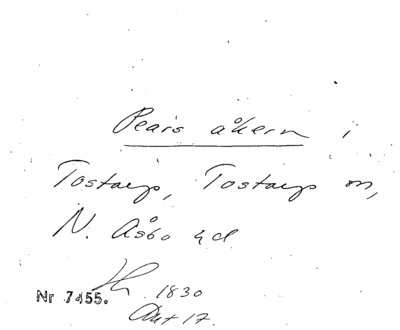 Pears åkern i
Tostarp, Tostarps m,
N. Åsbo hd
1830
Nr 7455.
Akt 17.